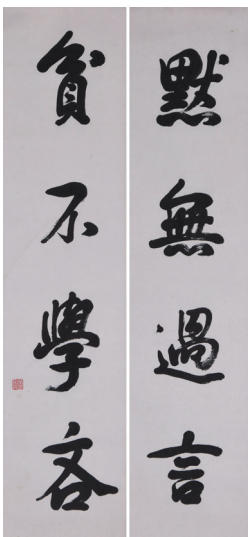 默無過言
貧不學吝